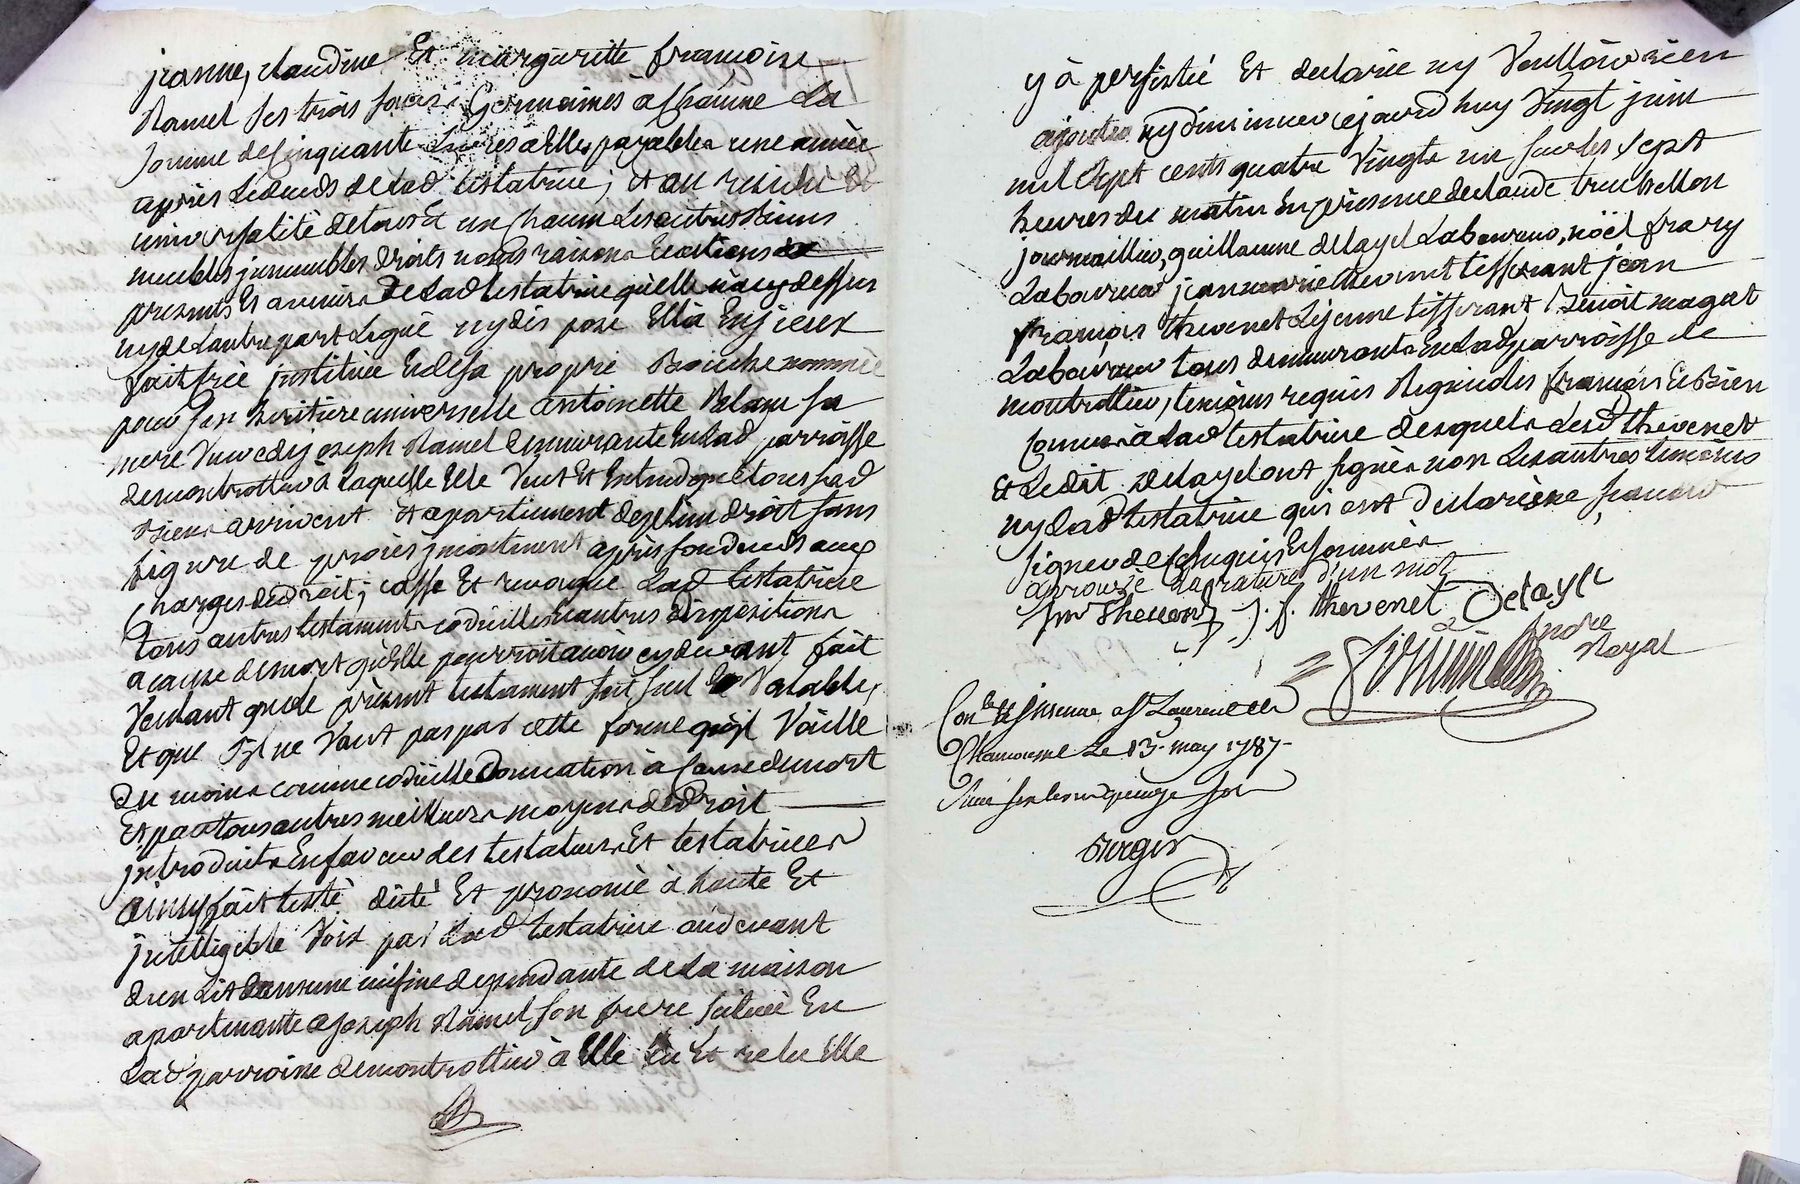 jeanne, claudine Et marguritte francoise
Ramel ses trois soeurs Germaines a Chacune La
somme de Cinquante Livres a Elles payables une année
après Le deceds de Lad testatrice; et au residu &
universalité de tous Et un chacun Les autres Biens
meubles jmmeubles droits noms raisons Et actions
presents Et avenirs de Lad testatrice qu'elle n'a cy dessus
ny de Lautre part Legué ny dis posé Ella En jceux
fait crée jnstituée Et de sa propre Bouche nommée
pour son heritiere universelle antoinette Blanc sa
mere Veuve de joseph Ramel demeurante En Lad parroisse
de montrottier a Laquelle Elle Veut Et Entend que tous sesd
Biens arrivent Et apartiennent de plein droit sans
figure de procès jncontinent après son deceds aux
Charges de droit; casse Et revoque Lad testatrice
tous autres testaments codicilles Et autres dispositions
a cause de mort qu'Elle pourroit avoir cy devant fait
Voulant que Le present testament soit seul Et Valable,
Et que S'il ne Vaut pas par cette forme qu'il Vaille
du moins comme codicille donnation à Cause de mort
Et par tous autres meilleurs moyens de droit
jntroduits En faveur des testateurs Et testatrices
ainsy fait testé dicté Et prononcé à haute Et
jntelligible Voix par Lad testatrice audevant
d'un Lit dans une cuisine dependante de La maison
apartenante a joseph Ramel son frere située En
Lad parroisse de montrottier à Elle Lu Et relu Elle
y à persistée Et declarée ny Voulloir rien
ajouter ny diminuer cejourd'huy Vingt juin
mil Sept cents quatre Vingts un sur les sept
heures du matin En presence de claude truchellon
journaillier, guillaume delayel Laboureur, noël frary
Laboureur jean marie thevenet tisserant jean
françois thevenet Lejeune tisserant, Benoit magat
Laboureur tous demeurants En Lad parroisse de
montrottier, temoins requis Regnicoles françois Et Bien
Connus a Lad testatrice desquels Lesd thevenet
Et Ledit delayel ont signés non Les autres temoins
ny Lad testatrice qui ont declarés ne sçavoir
signer de ce Enquis Et sommés
approuvé La rature d'un mot
jm Thevenet J. f. thevenet Delayel
andre
Noyal
Conlé Et jnsinué a St Laurent de
Chamousset Le 13 may 1787
Berger